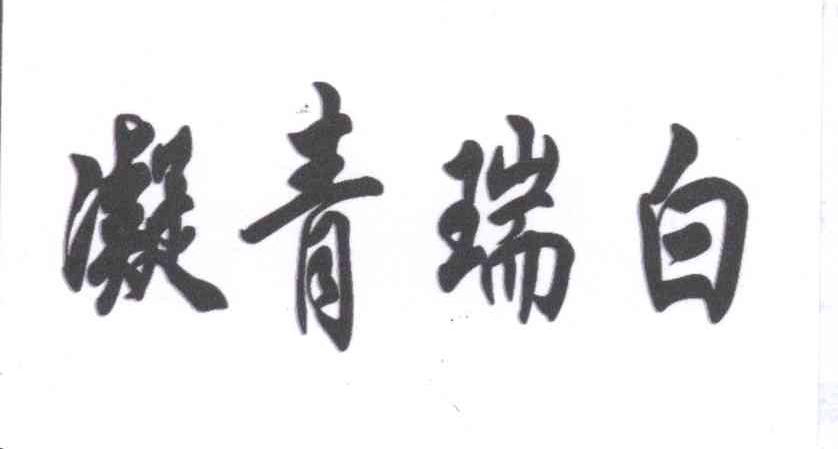 凝青瑞白